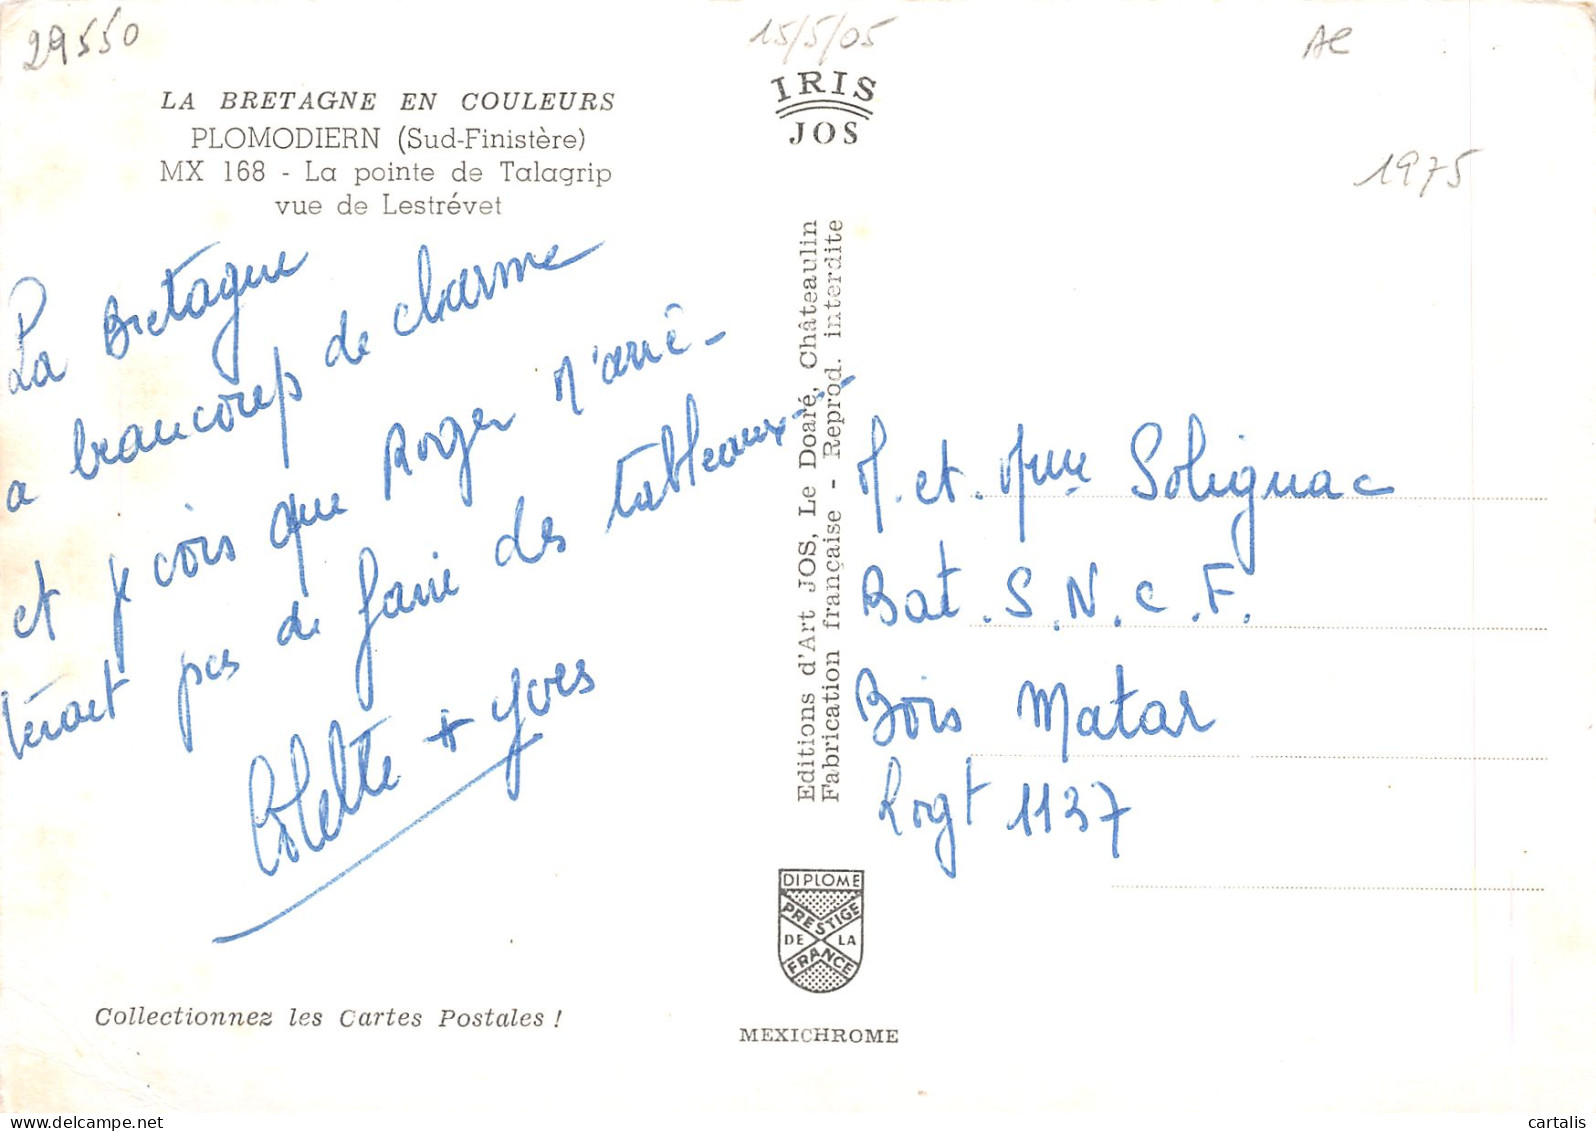 29550
15/5/05
AC
1975
LA BRETAGNE EN COULEURS
PLOMODIERN (Sud-Finistère)
MX 168 - La pointe de Talagrip
vue de Lestrévet
IRIS
JOS
La Bretagne
a beaucoup de charme
et je crois que Roger n'arrê-
terait pas de faire des tableaux...
Colette + Yves
Collectionnez les Cartes Postales !
Editions d'Art JOS, Le Doaré, Châteaulin
Fabrication française - Reprod. interdite
DIPLOME
PRESTIGE
DE LA
FRANCE
MEXICHROME
M. et. Mme Solignac
Bat. S.N.C.F.
Bois Matar
Logt 1137
cartalis